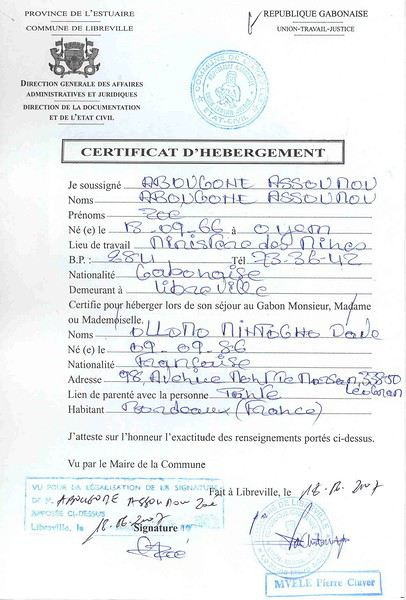 PROVINCE DE L'ESTUAIRE
COMMUNE DE LIBREVILLE
DIRECTION GENERALE DES AFFAIRES
ADMINISTRATIVES ET JURIDIQUES
DIRECTION DE LA DOCUMENTATION
ET DE L'ETAT CIVIL
REPUBLIQUE GABONAISE
UNION-TRAVAIL-JUSTICE
CERTIFICAT D'HEBERGEMENT
Je soussigné ABOUGONE ASSOUMOU
Noms ABOUGONE ASSOUMOU
Prénoms Zoe
Né (e) le 13-09-66 à oyem
Lieu de travail Ministère des Mines
B.P.: 2841 Tél. 73-36-42
Nationalité Gabonaise
Demeurant à Libreville
Certifie pour héberger lors de son séjour au Gabon Monsieur, Madame
ou Mademoiselle.
Noms OLLOMO MINTOGHO
Né (e) le 09-09-86
Nationalité Française
Adresse 98, Avenue
Lien de parenté avec la personne Tante
Habitant Bordeaux (France)
J'atteste sur l'honneur l'exactitude des renseignements portés ci-dessus.
Vu par le Maire de la Commune
Fait à Libreville, le 18-12-2007
VU POUR LA LEGALISATION DE LA SIGNATURE
DE M. ABOUGONE ASSOUMOU Zoe
APPOSEE CI-DESSUS
Libreville, le 18-12-2007
Signature
MVELE Pierre Claver